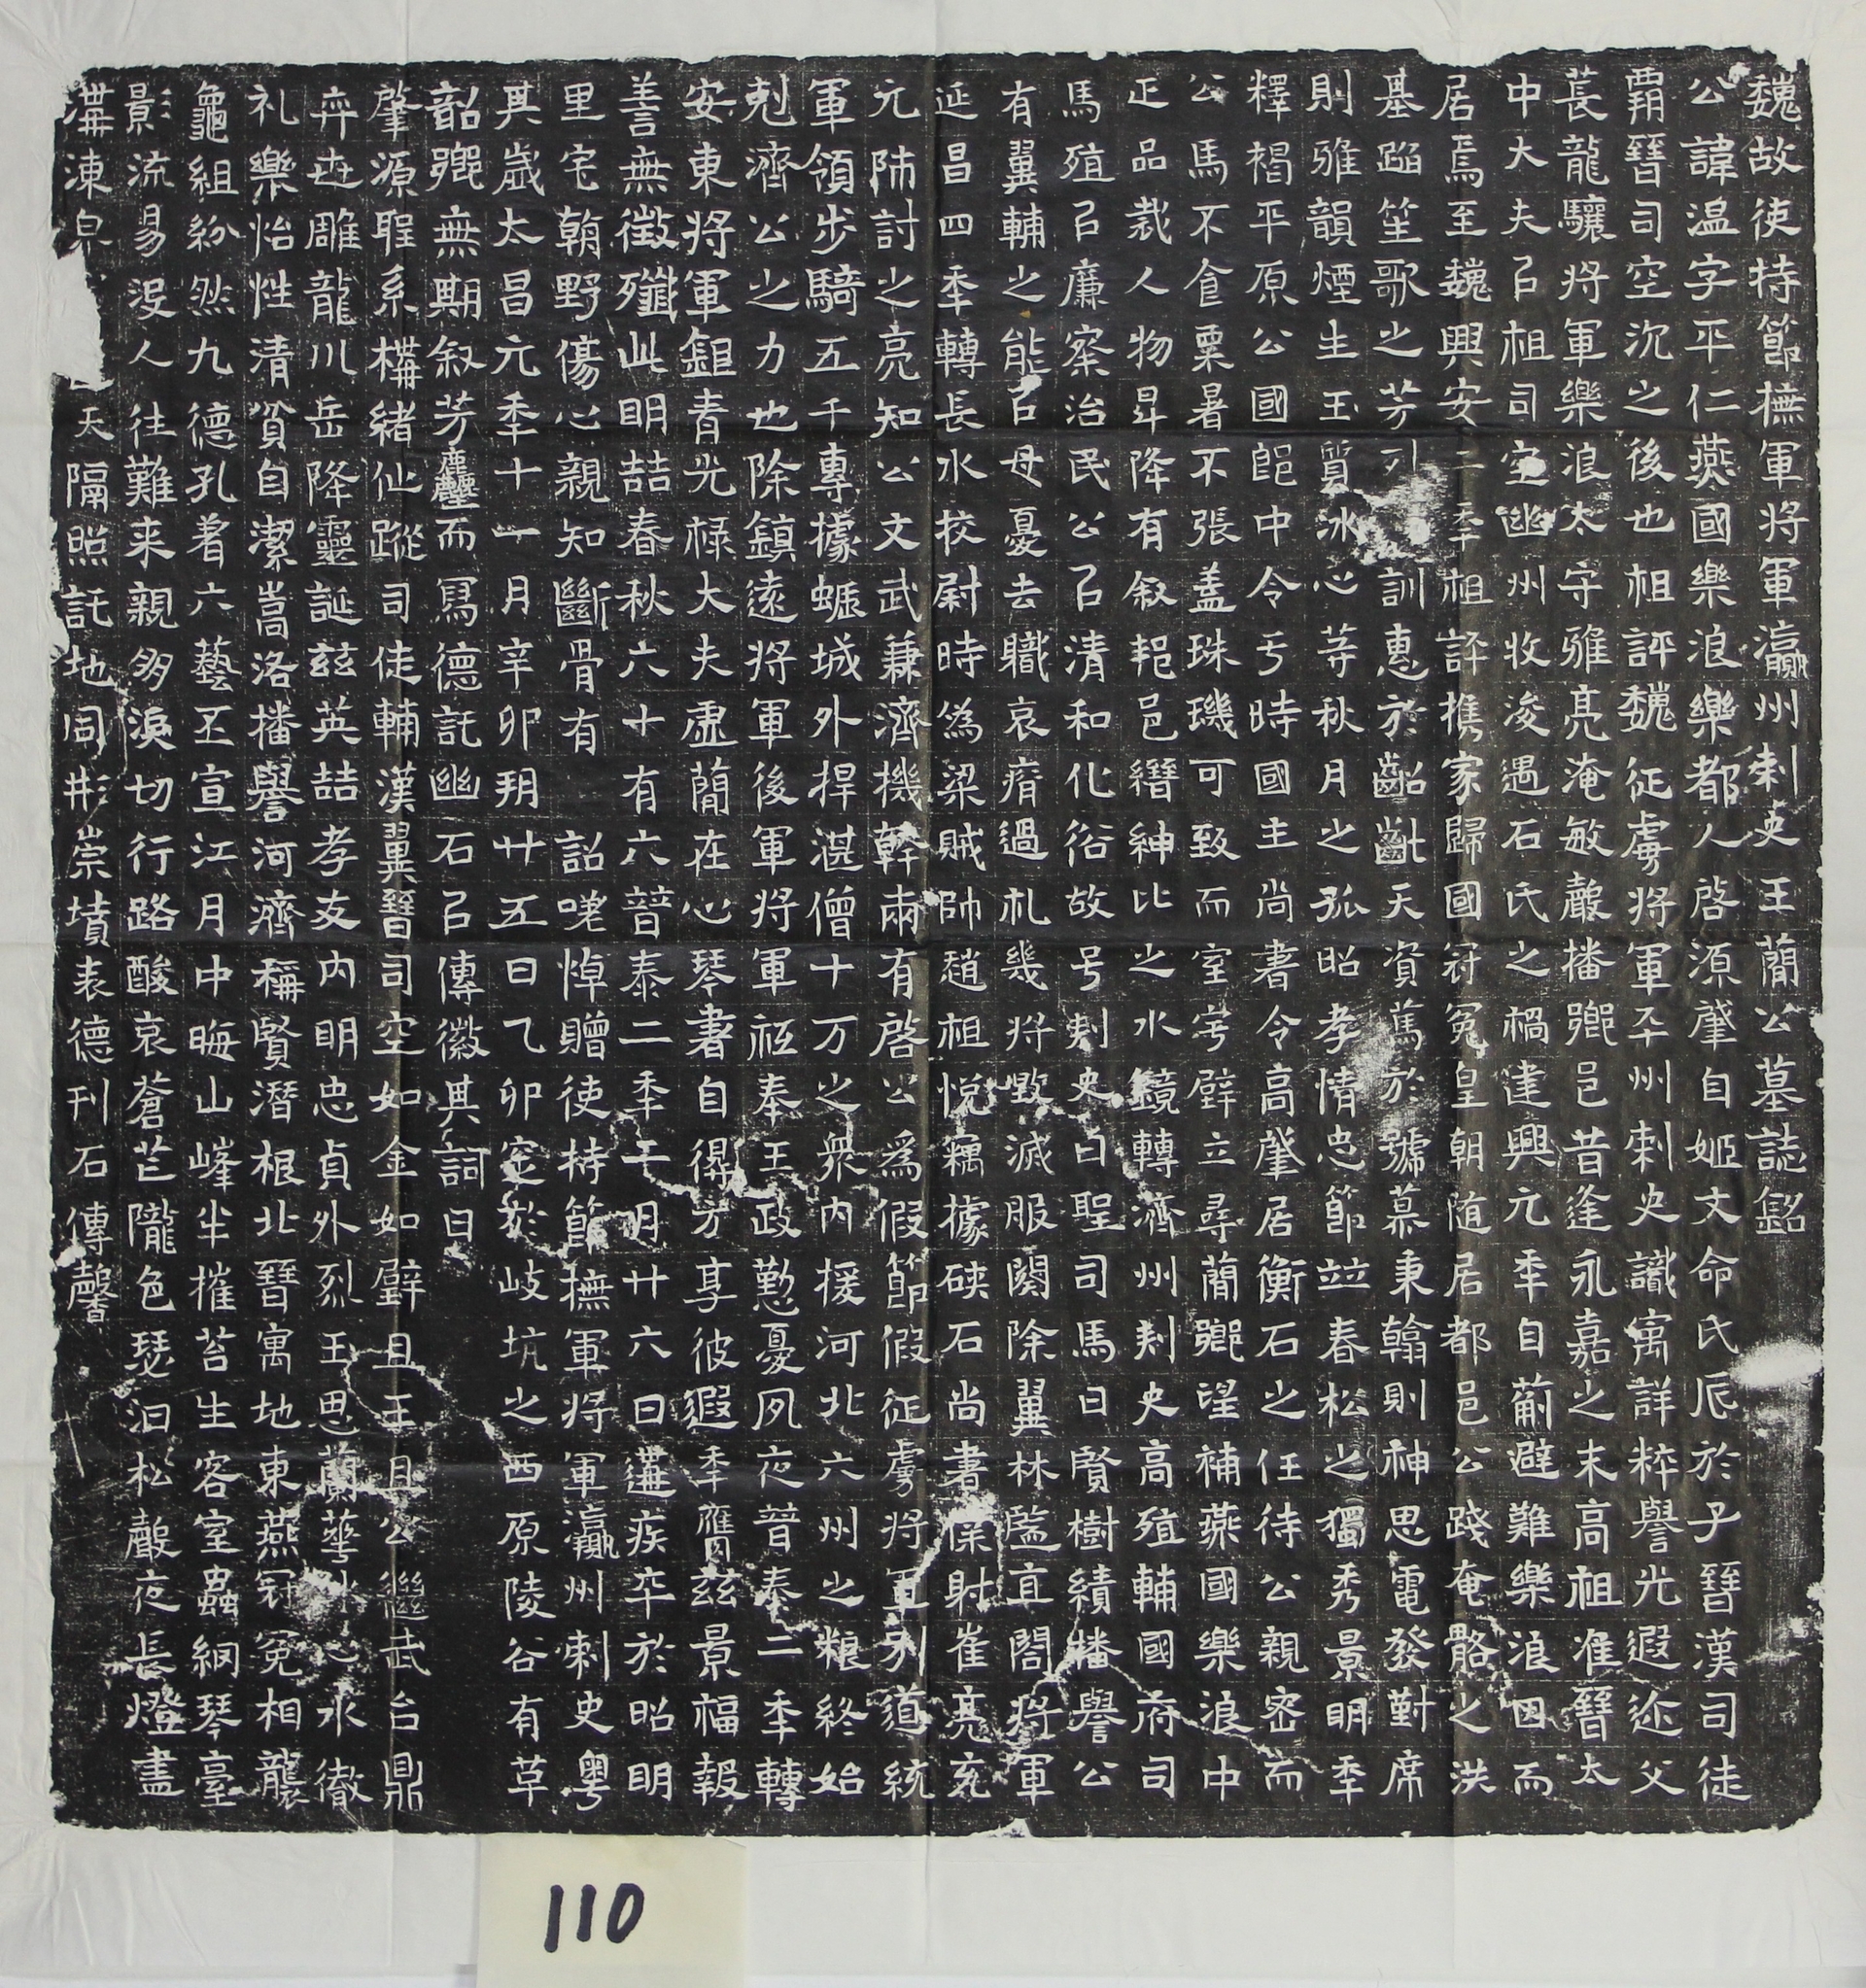 魏故使持節撫軍將軍瀛州刺史王簡公墓誌銘
公諱温字平仁燕國樂浪樂都人啓源肇自姬文命氏辰於子晉漢司徒
霸晉司空沉之後也祖評魏征虜將軍平州刺史識寓詳粹譽光遐迩父
萇龍驤將軍樂浪太守雅亮淹敏聲播鄉邑昔逢永嘉之末高祖准晉太
中大夫以祖司空幽州牧浚遇石氏之禍建興元年自薊避難樂浪因而
居焉至魏興安二年祖評攜家歸國冠冕皇朝随居都邑公踐奄骼之洪
基蹈笙歌之芳列訓惠於齠齔天資蔿於號慕秉翰則神思電發對席
則雅韻煙生玉質冰心等秋月之孤昭孝情忠節竝春松之獨秀景明年
釋褐平原公國郎中令于時國主尚書令高肇居衡石之任待公親密而
公馬不食粟暑不張盖珠璣可致而室宇壁立尋簡鄉望補燕國樂浪中
正品裁人物昇降有叙耙邑縉紳比之水鏡轉濟州刾史高殖輔國府司
馬殖以廉察治民公以清和化俗故号刾史曰聖司馬曰賢樹績播譽公
有翼輔之能以母憂去職哀瘠過札幾將毀滅服闋除翼林監直閤將軍
延昌四年轉長水校尉時為梁賊帥趙祖悅竊據硤石尚書僕射崔亮充
元帥討之亮知公文武蒹濟機幹兩有啓公為假節假征虜將軍別道統
軍領步騎五千專據蛎城外捍湛僧十万之衆内援河北六州之粮終始
剋濟公之力也除鎮遠將軍後軍將軍祗奉王政懃憂夙夜普泰二年轉
安東將軍銀青光祿大夫虛簡在心琴書自得方享彼遐年膺茲景福報
善無徵殲此明喆春秋六十有六普泰二年二月廿六日遘疾卒於昭明
里宅朝野傷心親知斷骨有 詔嗟悼贈使持節撫軍將軍瀛州刺史粵
其歲太昌元年十一月辛卯朔廿五日乙卯窆於岐坑之西原陵谷有草
韶鄉無期叙芳塵而寫德託幽石以傳徽其詞曰
肇源聖系構緒仙蹤司徒輔漢翼晉司空如金如璧且王且公繼武台鼎
弈世雕龍川岳降靈誕茲英喆孝友内明忠貞外烈玉思蘭華冰心水徹
礼樂怡性清貧自潔嵩洛播譽河濟稱賢潛根北晉寓地東燕冠冕相襲
龜組紛然九德孔着六藝丕宣江月中晦山峰半摧苔生客室蟲網琴臺
影流易没人往難来親多淚切行路酸哀蒼芒隴色瑟汩松聲夜長燈盡
溝凍泉 天隔照託地同彬崇墳表德刊石傳馨
110